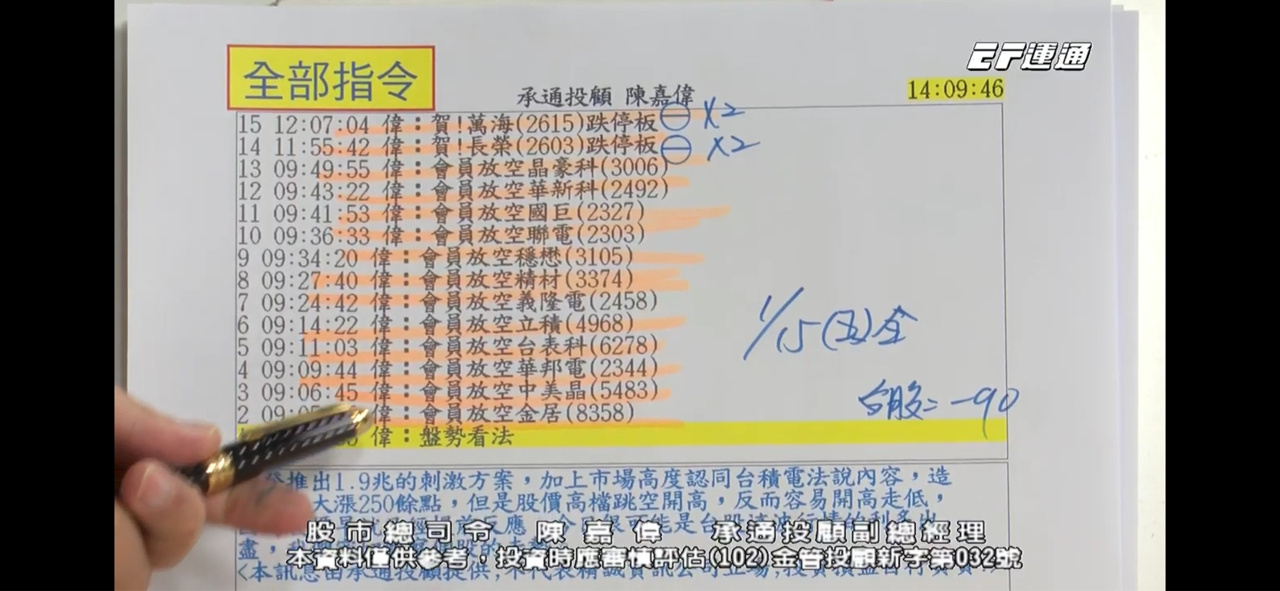 全部指令
EF運通
承通投顧 陳嘉偉
14:09:46
15 12:07:04 偉：賀!萬海(2615)跌停板 ㊀ x2
14 11:55:42 偉：賀!長榮(2603)跌停板 ㊀ x2
13 09:49:55 偉：會員放空晶豪科(3006)
12 09:43:22 偉：會員放空華新科(2492)
11 09:41:53 偉：會員放空國巨(2327)
10 09:36:33 偉：會員放空聯電(2303)
9 09:34:20 偉：會員放空穩懋(3105)
8 09:27:40 偉：會員放空精材(3374)
7 09:24:42 偉：會員放空義隆電(2458)
6 09:14:22 偉：會員放空立積(4968)
5 09:11:03 偉：會員放空台表科(6278)
4 09:09:44 偉：會員放空華邦電(2344)
3 09:06:45 偉：會員放空中美晶(5483)
2 偉：會員放空金居(8358)
偉：盤勢看法
1/15(五)全
台股=-90
推出1.9兆的刺激方案，加上市場高度認同台積電法說內容，造
大漲250餘點，但是股價高檔跳空開高，反而容易開高走低，
股市總司令 陳嘉偉 承通投顧副總經理
本資料僅供參考，投資時應審慎評估(102)金管投顧新字第032號